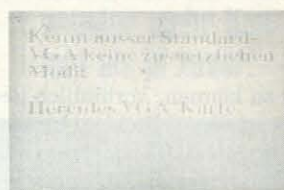 Kennt ausser Standard-
VGA keine zusätzlichen
Modi:
Hercules VGA-Karte